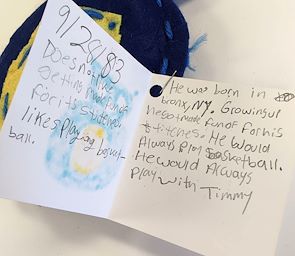 9/28/83
Does not like
getting made fun of
for its stitched
likes Playing basket-
ball.
He was born in
bronx, NY. Growing up
he got made fun of for his
stitches. He would
Always Play basketball.
He would Always
Play with Timmy